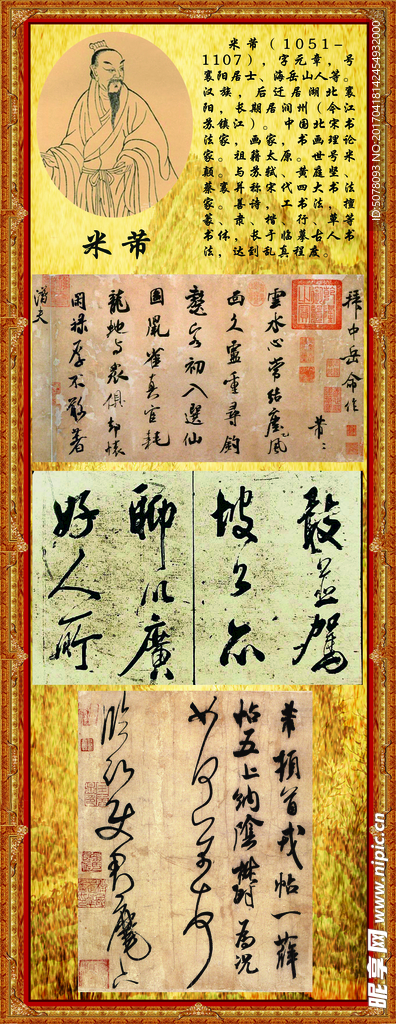 米芾（1051-
1107），字元章，号
襄阳居士、海岳山人等。
汉族，后迁居湖北襄
阳，长期居润州（今江
苏镇江）。中国北宋书
法家，画家，书画理论
家。祖籍太原。世号米
颠。与苏轼、黄庭坚、
蔡襄并称宋代四大书法
家。善诗，工书法，擅
篆、隶、楷、行、草等
书体，长于临摹古人
书法，达到乱真程度。
米芾
拜中岳命作
芾〻
雲水心常結塵風
面久盧重尋釣
鼇客初入選仙
圖鼠雀真官耗
龍蛇與眾俱却懷
閑祿厚不敢著
潛夫
敢並駕
坡公亦
聊以廣
好人所
芾頓首戎帖一薛
帖五上納陰鬱為況
如何
昵享网 www.nipic.cn
ID:5078093 NO:20170418142454932000